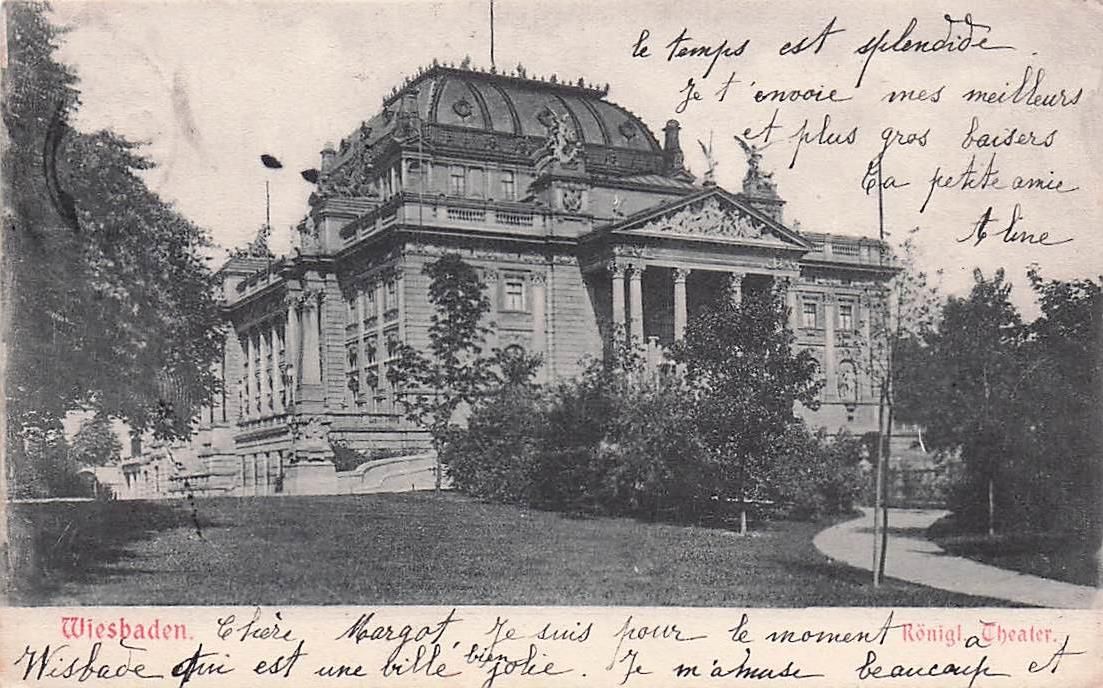 le temps est splendide.
Je t'envoie mes meilleurs
et plus gros baisers
Ta petite amie
Aline
Wiesbaden. Chère Margot, Je suis pour le moment à Königl. Theater.
Wisbade qui est une ville bien jolie. Je m'amuse beaucoup et